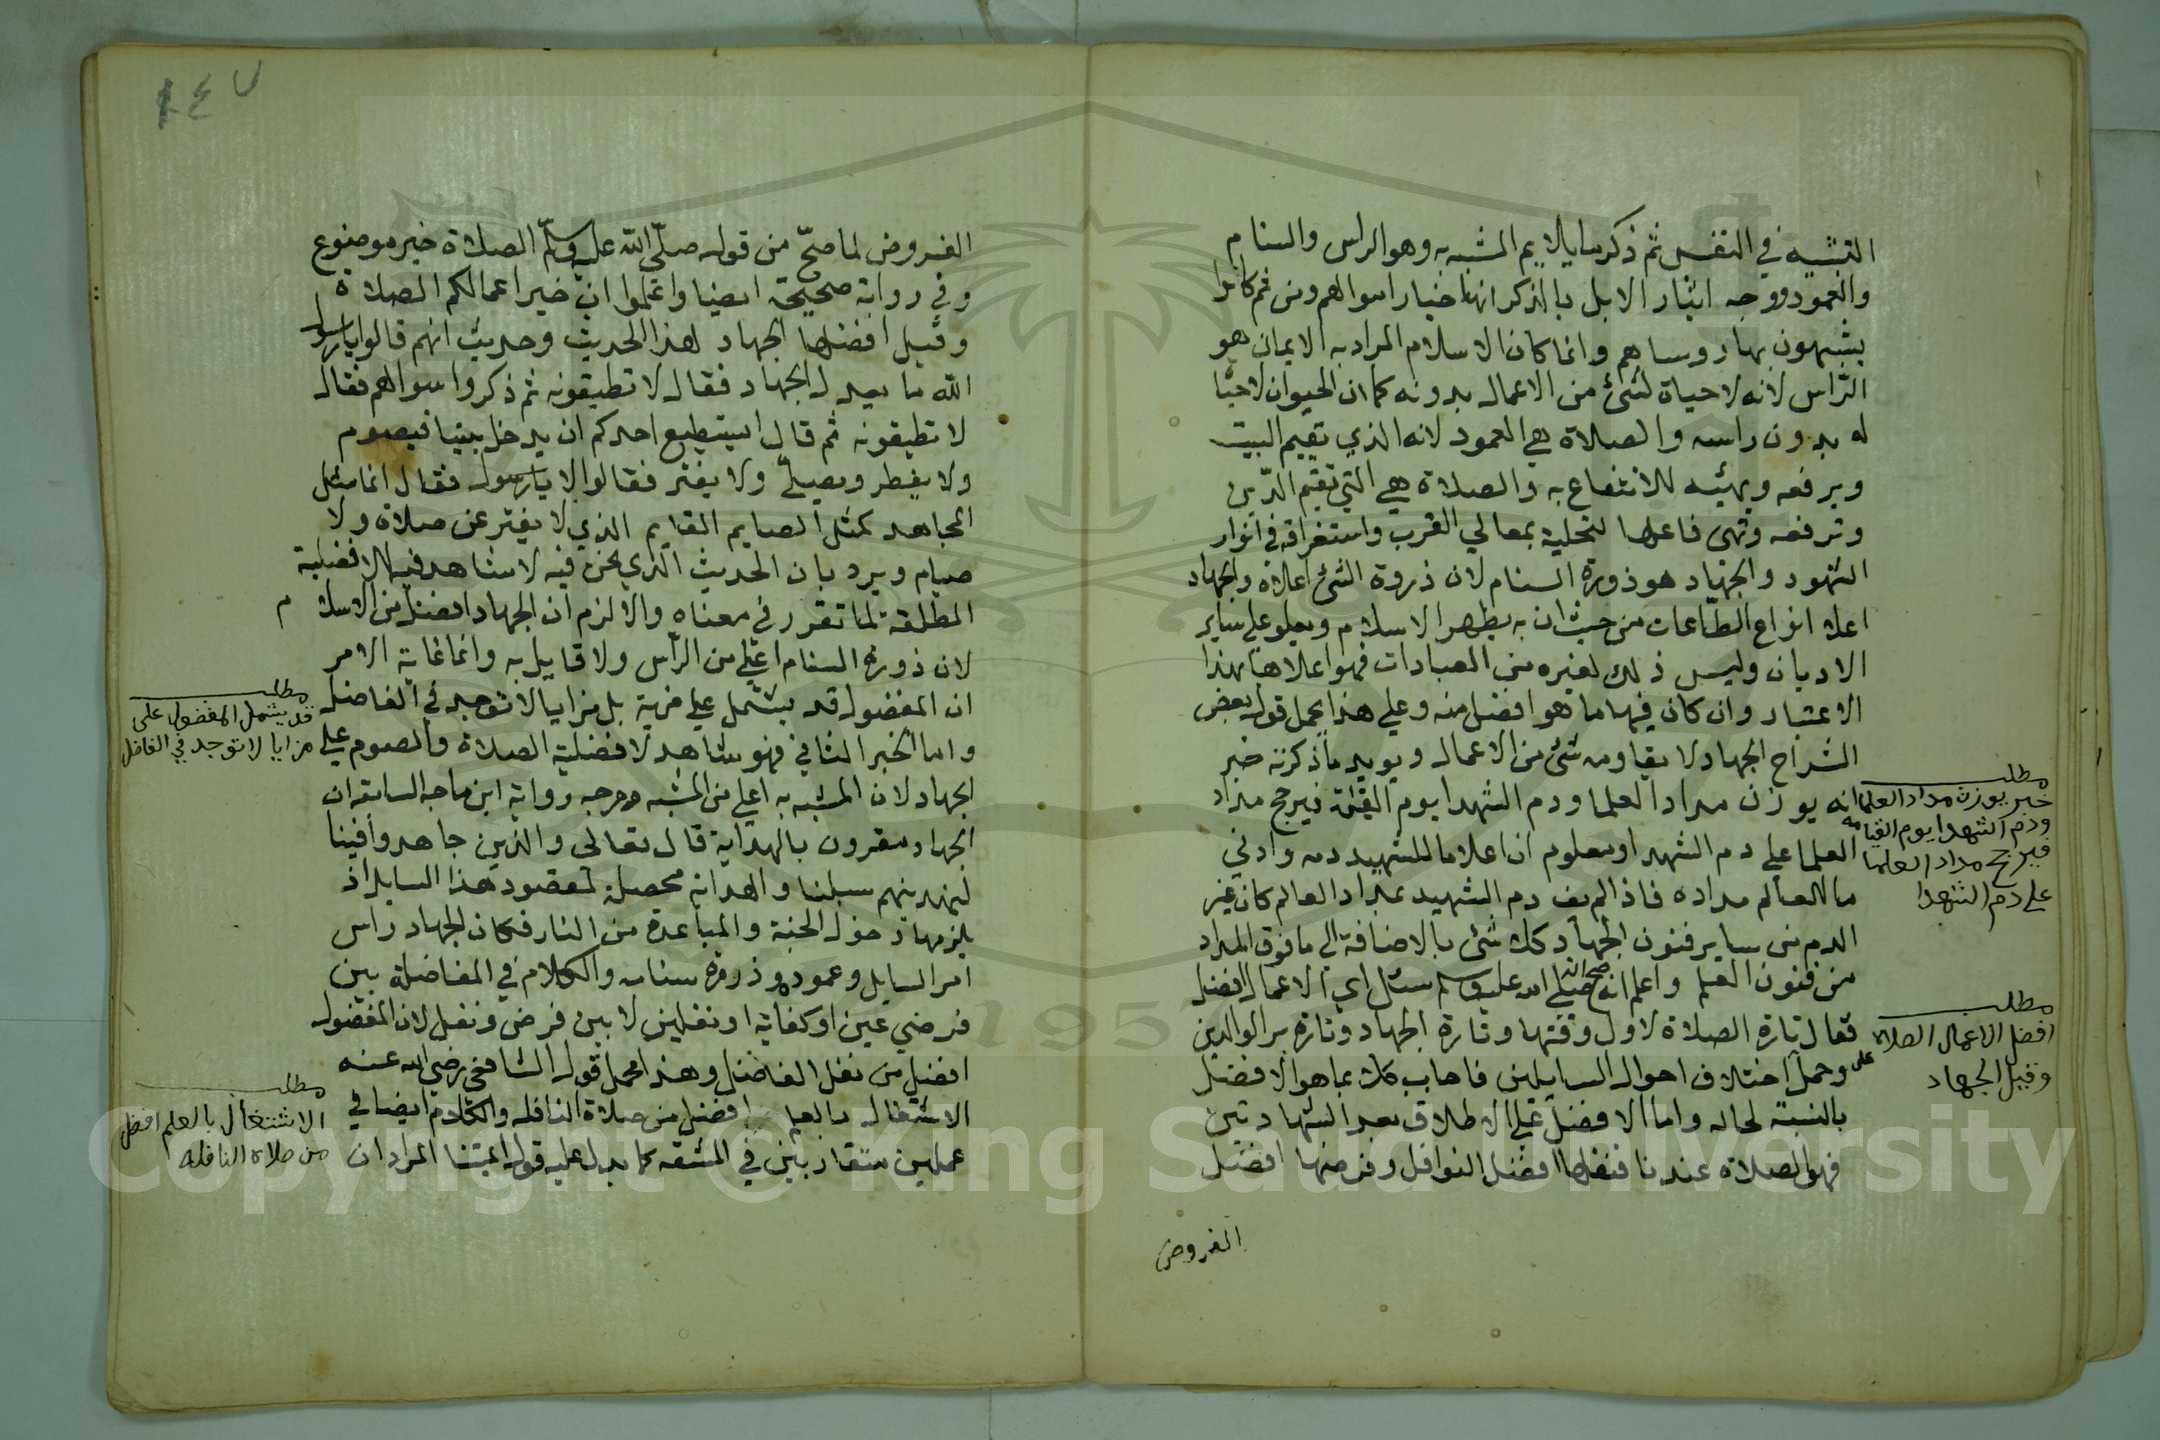 التشبيه في النفس ثم ذكر ما يلايم المشبه به وهو الراس والسنام
والعمود ووجه ايثار الابل بالذكر انها خيار اموالهم ومن ثم كانوا
يشبهون بها روساهم وانما كان الاسلام المراد به الايمان هو
الرّاس لانه لا حياة لشئ من الاعمال بدونه كما ان الحيوان لا حياة
له بدون راسه والصلاة هي العمود لانه الذي يقيم البيت
ويرفعه ويهيئه للانتفاع به والصلاة هي التي تقيم الدّين
وترفعه وتهئ فاعلها لتحليه بمعالي القرب واستغراقه في انوار
الشهود والجهاد هو ذروة السنام لان ذروة الشئ اعلاه والجهاد
اعلا انواع الطاعات من حيث ان به يظهر الاسلام ويعلو على ساير
الاديان وليس ذلك لغيره من العبادات فهو اعلاها بهذا
الاعتبار وان كان فيها ما هو افضل منه وعلى هذا يحمل قول بعض
الشراح الجهاد لا يقاومه شئ من الاعمال ويويد ما ذكرته خبر
انه يوزن مداد العلما ودم الشهدا يوم القيمة فيرجح مداد
العلما على دم الشهدا ومعلوم ان اعلا ما للشهيد دمه وادني
ما للعالم مداده فاذا لم يف دم الشهيد بمداد العالم كان غير
الدم من ساير فنون الجهاد كلا شئ بالاضافة الي ما فوق المداد
من فنون العلم واعلم انه صح انه صلى الله عليه وسلم سئل اي الاعمال افضل
فقال تارة الصلاة لاول وقتها وتارة الجهاد وتارة بر الوالدين
وحمل على اختلاف احوال السايلين فاجاب كلا بما هو الافضل
بالنسبة لحاله واما الافضل على الاطلاق بعد الشهادتين
فهو الصلاة عندنا فنفلها افضل النوافل وفرضها افضل
الفروض
مطلب
خبر يوزن مداد العلما
ودم الشهدا يوم القيامه
فيرجح مداد العلما
على دم الشهدا
مطلب
افضل الاعمال الصلاة
وقيل الجهاد
٢٤٧
الفروض لما صحّ من قوله صلّى الله عليه وسلم الصلاة خير موضوع
وفي رواية صحيحة ايضا واعلموا ان خير اعمالكم الصلاة
وقيل افضلها الجهاد لهذا الحديث وحديث انهم قالوا يا رسول
الله ما يعدل الجهاد فقال لا تطيقونه ثم ذكروا سوالهم فقال
لا تطيقونه ثم قال ايستطيع احدكم ان يدخل بيتا فيصوم
ولا يفطر ويصليّ ولا يفتر فقالوا لا يا رسول فقال انما مثل
المجاهد كمثل الصايم القايم الذي لا يفتر عن صلاة ولا
صيام ويرد بان الحديث الذي نحن فيه لا شاهد فيه للافضلية
المطلقة لما تقرر في معناه والا لزم ان الجهاد افضل من الاسلام
لان ذروة السنام اعلى من الرأس ولا قايل به وانما غاية الامر
ان المفضول قد يشتمل علي مزية بل مزايا لا توجد في الفاضل
واما الخبر الثاني فهو شاهد لافضلية الصلاة والصوم علي
الجهاد لان المشبه به اعلي من المشبه ووجه رواية ابن ماجه السابقة ان
الجهاد مقرون بالهداية قال تعالى والذين جاهدوا فينا
لنهدينهم سبلنا والهداية محصلة لمقصود هذا السايل اذ
يلزمها دخول الجنة والمباعدة من النار فكان الجهاد راس
امر السايل وعموده وذروة سنامه والكلام في المفاضلة بين
فرضي عين او كفاية او نفلين لا بين فرض ونفل لان المفضول
افضل من نفل الفاضل وهذا محمل قول الشافعي رضي الله عنه
الاشتغال بالعلم افضل من صلاة النافلة والكلام ايضا في
عملين متقاربين في المشقة كما يدل عليه قول ايمتنا المراد ان
مطلب
قد يشتمل المفضول على
مزايا لا توجد في الفاضل
مطلب
الاشتغال بالعلم افضل
من صلاة النافله
Copyright © King Saud University
1957